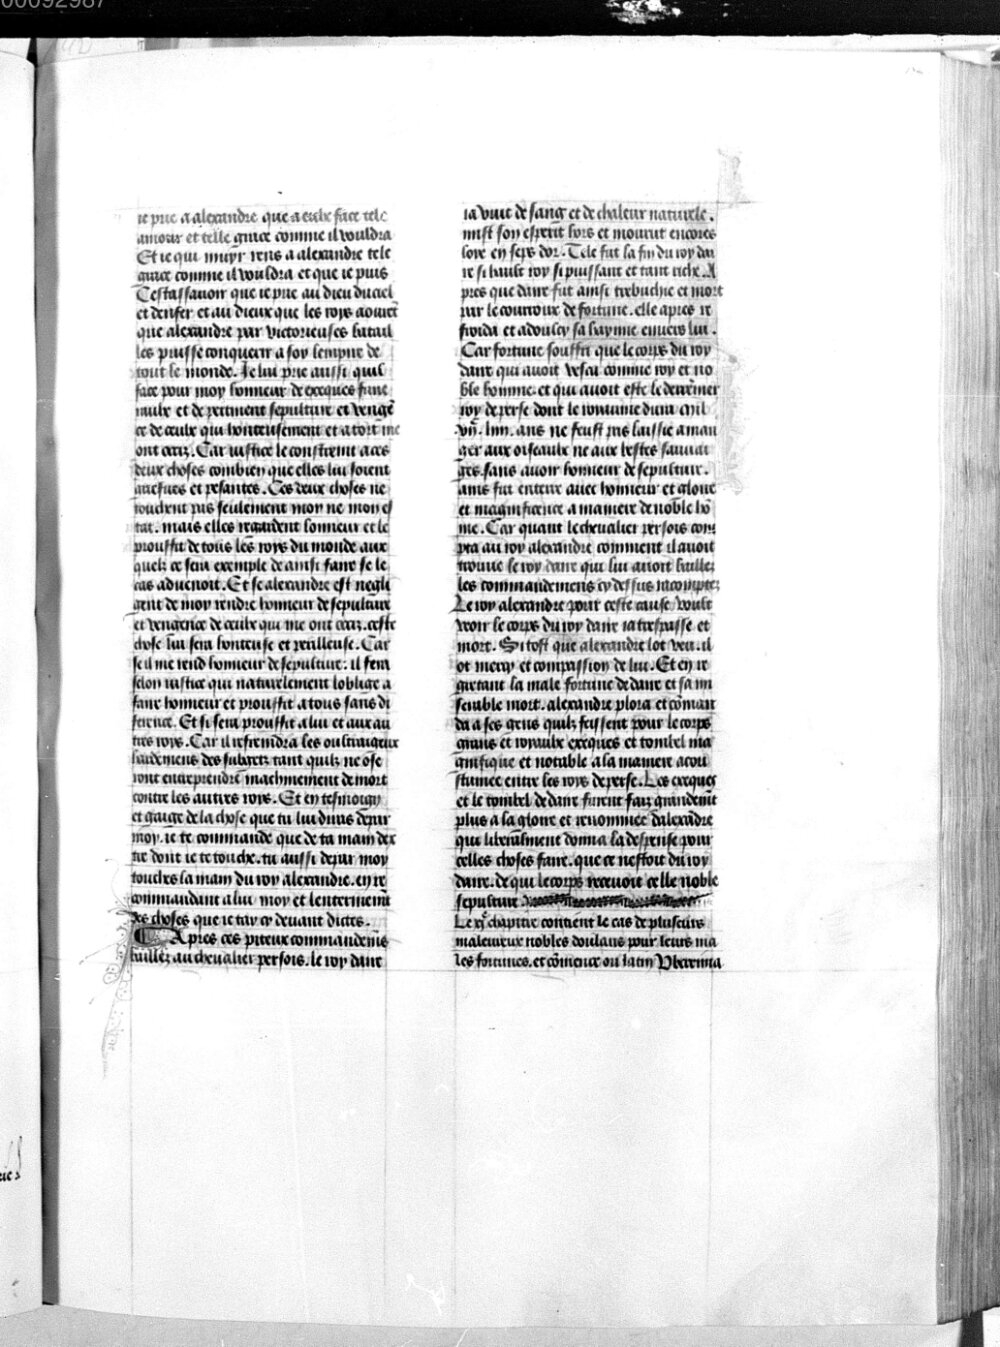 00092987
ie prie a alexandre que a eulx face tele
amour et telle grace comme il vouldra
Et ie qui muyr rens a alexandre tele
grace comme il vouldra et que ie puis
Cestassauoir que ie prie au dieu du ciel
et denfer et au dieux que les roys aouret
que alexandre par victorieuses batail
les puisse conquerir a soy lempire de
tout le monde. Je lui prie aussi quil
face pour moy honneur de exeques fune
raulx et de pertinent sepulture et vengẽ
ce de ceulx qui honteusement et a tort me
ont occiz. Car iustice le constreint a ces
deux choses combien que elles lui soient
griefues et pesantes. Ces deux choses ne
touchent pas seulement moy ne mon es
tat. mais elles regardent lonneur et le
prouffit de tous les roys du monde aux
quelz ce sera exemple de ainsi faire se le
cas aduenoit. Et se alexandre est negli
gent de moy rendre honneur de sepulture
et vengence de ceulx qui me ont occiz. ceste
chose lui sera honteuse et perilleuse. Car
se il me rend honneur de sepulture. il fera
selon iustice qui naturelement loblige a
faire honneur et prouffit a tous sans di
ference. Et si sera prouffit a lui et aux au
tres roys. Car il refreindra les oultrageux
hardemens des subgetz tant quilz ne ose
ront entreprendre machinement de mort
contre les autres roys. Et en tesmoing
et gaige de la chose que tu lui diras depar
moy. ie te commande que de ta main dex
tre dont ie te touche. tu aussi depar moy
touches la main du roy alexandre. en re
commandant a lui moy et lenterinemẽt
des choses que ie tay cy deuant dictes.
Apres ces piteux commandemẽs
baillez au cheualier persois. le roy daire
ia vuit de sang et de chaleur naturele.
mist son esperit hors et mourut encores
lore en seps dor. Tele fut la fin du roy dai
re si hault roy si puissant et tant riche. A
pres que daire fut ainsi trebuchie et mort
par le courroux de fortune. elle apres re
froida et adoulcy sa hayme enuers lui.
Car fortune souffri que le corps du roy
daire qui auoit vescu comme roy et no
ble homme. et qui auoit este le derrẽnier
roy de perse dont le royaume dura mil
ans ne feust pas laissie a man
ger aux oiseaulx ne aux bestes sauuai
ges. sans auoir honneur de sepulture.
ains fut enterre auec honneur et gloire
et magnificence a maniere de noble hõ
me. Car quant le cheualier persois com
pta au roy alexandre comment il auoit
trouue le roy daire qui lui auoit baillez
les commandemens cy dessus racomptez
Le roy alexandre pour ceste cause voult
veoir le corps du roy daire ia trespasse et
mort. Si tost que alexandre lot veu. il
ot mercy et compassion de lui. Et en re
gretant la male fortune de daire et sa mi
serable mort. alexandre plora et cõman
da a ses gens quilz feissent pour le corps
grans et royaulx exeques et tombel ma
gnifique et notable a la maniere acou
stumee entre les roys de perse. Les exeques
et le tombel de daire furent faiz grandemẽt
plus a la gloire et renommee dalexãdre
qui liberalment donna la despense pour
celles choses faire. que ce nestoit du roy
daire. de qui le corps receuoit celle noble
sepulture
Le chapitre contient le cas de pluseurs
maleureux nobles doulans pour leurs ma
les fortunes. et cõmence ou latin Vberrima